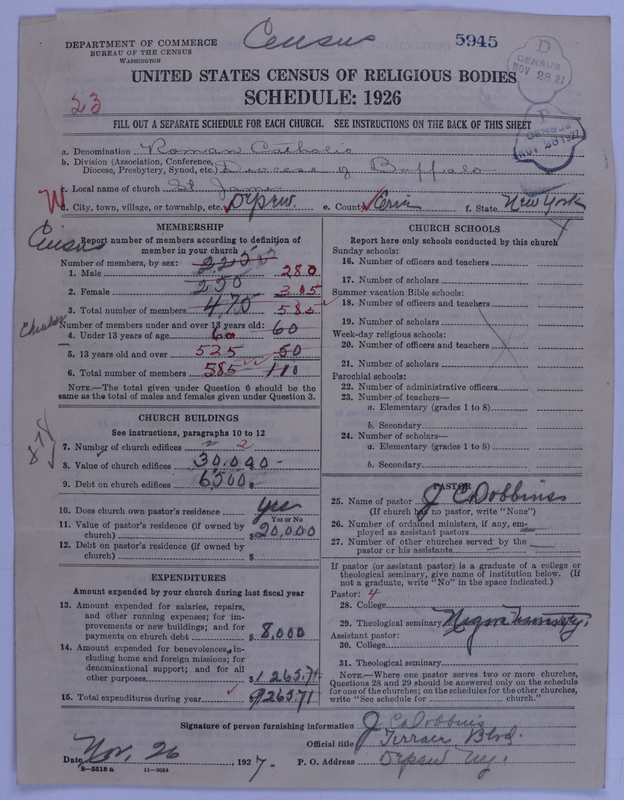 DEPARTMENT OF COMMERCE
BUREAU OF THE CENSUS
WASHINGTON
Census
5945
D
CENSUS
NOV 28 27
UNITED STATES CENSUS OF RELIGIOUS BODIES
SCHEDULE: 1926
23
D
CENSUS
NOV 28 1927
FILL OUT A SEPARATE SCHEDULE FOR EACH CHURCH. SEE INSTRUCTIONS ON THE BACK OF THIS SHEET
a. Denomination Roman Catholic
b. Division (Association, Conference, Diocese, Presbytery, Synod, etc.) Diocese of Buffalo
c. Local name of church St James
d. City, town, village, or township, etc. e. County Erie f. State New York
MEMBERSHIP
Census
Report number of members according to definition of member in your church
Number of members, by sex:
1. Male 280
2. Female 250 305
3. Total number of members 470 585
Number of members under and over 13 years old: 60
4. Under 13 years of age 60
5. 13 years old and over 525 50
6. Total number of members 585 110
NOTE.—The total given under Question 6 should be the same as the total of males and females given under Question 3.
CHURCH BUILDINGS
See instructions, paragraphs 10 to 12
7. Number of church edifices 2
8. Value of church edifices 30,000-
9. Debt on church edifices 6,500
10. Does church own pastor's residence yes
Yes or No
11. Value of pastor's residence (if owned by church) $20,000
12. Debt on pastor's residence (if owned by church) $
EXPENDITURES
Amount expended by your church during last fiscal year
13. Amount expended for salaries, repairs, and other running expenses; for improvements or new buildings; and for payments on church debt $8,000
14. Amount expended for benevolences, including home and foreign missions; for denominational support; and for all other purposes $1265.71
15. Total expenditures during year $9265.71
CHURCH SCHOOLS
Report here only schools conducted by this church
Sunday schools:
16. Number of officers and teachers
17. Number of scholars
Summer vacation Bible schools:
18. Number of officers and teachers
19. Number of scholars
Week-day religious schools:
20. Number of officers and teachers
21. Number of scholars
Parochial schools:
22. Number of administrative officers
23. Number of teachers—
a. Elementary (grades 1 to 8)
b. Secondary
24. Number of scholars—
a. Elementary (grades 1 to 8)
b. Secondary
PASTOR
25. Name of pastor J C Dobbins
(If church has no pastor, write "None")
26. Number of ordained ministers, if any, employed as assistant pastors
27. Number of other churches served by the pastor or his assistants
If pastor (or assistant pastor) is a graduate of a college or theological seminary, give name of institution below. (If not a graduate, write "No" in the space indicated.)
Pastor: 4
28. College
29. Theological seminary
Assistant pastor:
30. College
31. Theological seminary
NOTE.—Where one pastor serves two or more churches, Questions 28 and 29 should be answered only on the schedule for one of the churches; on the schedules for the other churches, write "See schedule for church."
Signature of person furnishing information J C Dobbins
Official title Terrace Blvd.
Date Nov. 26, 1927. P. O. Address
8-5518 a 11-9054